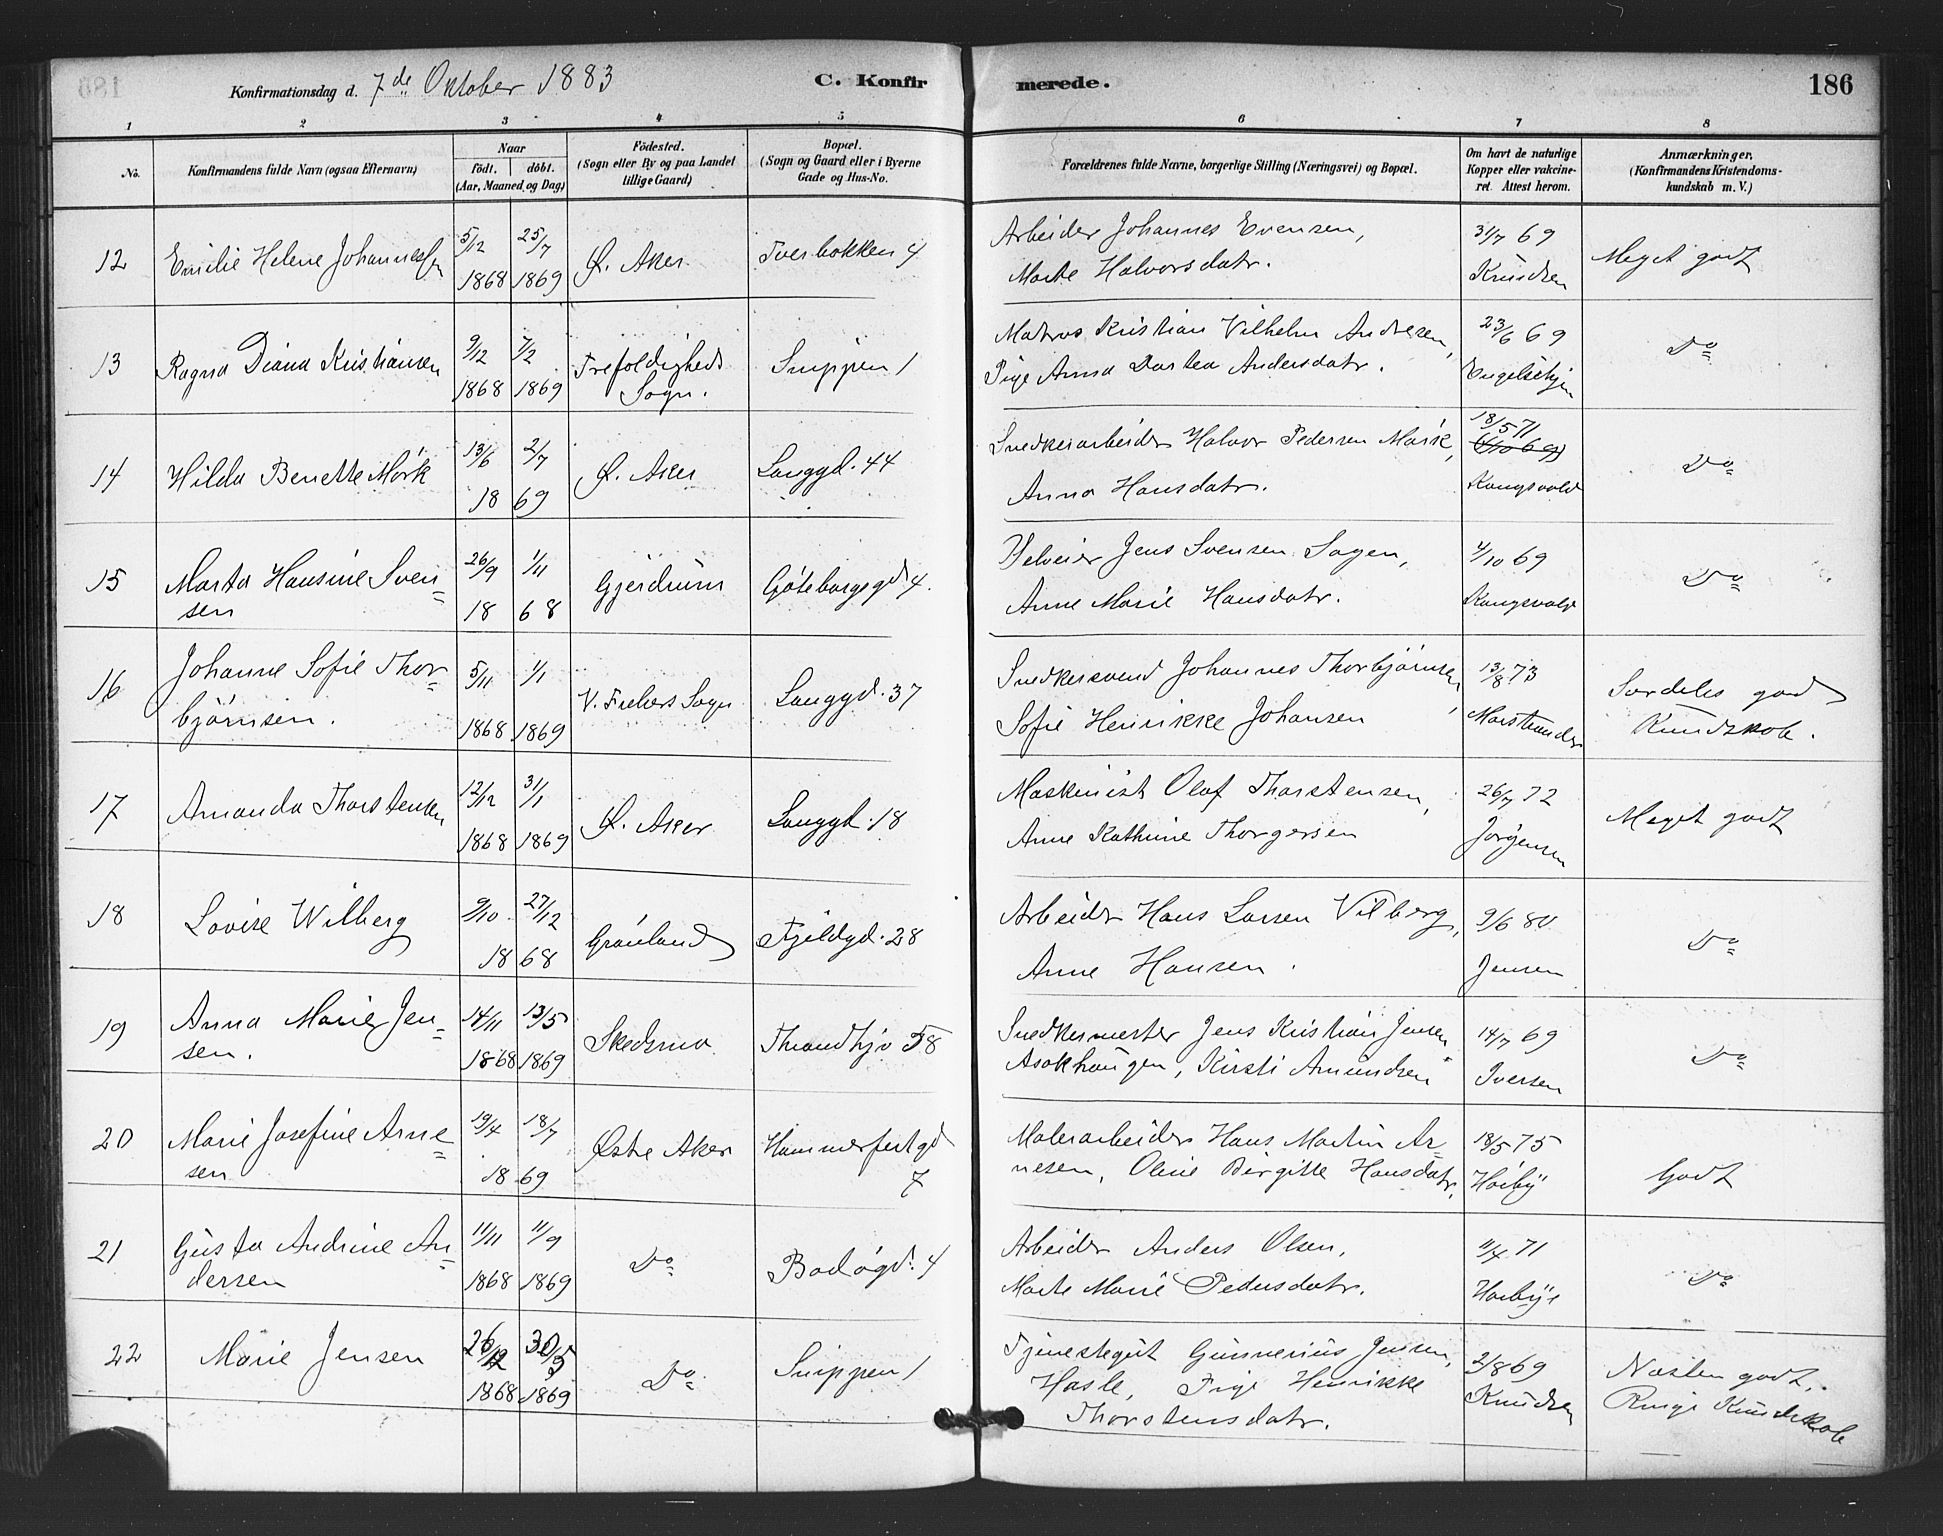 Konfirmationsdag d. 7de Oktober 1883 C. Konfirmerede. 186
1 2 3 4 5 6 7 8
No. Konfirmandens fulde Navn (ogsaa Efternavn) Naar født. døbt. (Aar, Maaned og Dag) Fødested. (Sogn eller By og paa Landet tillige Gaard) Bopæl. (Sogn og Gaard eller i Byerne Gade og Hus-No. Forældrenes fulde Navne, borgerlige Stilling (Næringsvei) og Bopæl. Om havt de naturlige Kopper eller vakcineret. Attest herom. Anmærkninger. (Konfirmandens Kristendomskundskab m. V.)
12 Emilie Helene Johannessen 5/12 1868 25/7 1869 Ø. Aker Tverbakken 4 Arbeider Johannes Evensen, Marte Halvorsdatr. 31/7 69 Knudsen Meget godt
13 Ragna Diana Kristiansen 9/12 1868 7/2 1869 Trefoldigheds Sogn. Snippen 1 Matros Kristian Vilhelm Andresen, Pige Anna Dortea Andersdatr. 23/6 69 Engelschjøn Do
14 Hilda Benette Mørk 13/6 2/7 1869 Ø. Aker Langgd. 44 Snedkerarbeider Halvor Pedersen Mørk, Anna Hansdatr. 18/5 71 Kongsvold Do
15 Marta Hansine Svensen 26/9 1/11 1868 Gjerdrum Gøteborgsgd 4. Selveier Jens Svensen Sagen, Anne Marie Hansdatr. 4/10 69 Kongsvold Do
16 Johanne Sofie Thorbjørnsen. 5/11 1868 1/1 1869 V. Frelsers Sogn Langgd. 37 Snedkersvend Johannes Thorbjørnsen, Sofie Henrikke Johansen 13/8 73 Marstrander Særdeles god Kundskab.
17 Amanda Thorstensen 12/12 1868 31/1 1869 Ø. Aker Langgd. 18 Maskinist Olaf Thorstensen, Anne Kathrine Thorgersen 26/7 72 Jørgensen Meget godt
18 Lovise Wilberg 9/10 27/12 1868 Grønland Fjeldgd. 28 Arbeider Hans Larsen Vilberg, Anne Hansen. 9/6 80 Jensen Do
19 Anna Marie Jensen. 14/11 1868 13/5 1869 Skedsmo Throndhjv 58 Snedkermester Jens Kristian Jensen Asakhaugen, Kirsti Amundsen 14/7 69 Iversen Do
20 Marie Josefine Arnesen 19/4 18/7 1869 Østre Aker Hammerfestgd 7 Malerarbeider Hans Martin Arnesen, Oline Birgitte Hansdatr. 18/5 75 Høiby Godt
21 Gusta Andrine Andersen 11/11 1868 11/9 1869 Do Bodøgd. 4 Arbeider Anders Olsen, Marte Marie Pedersdatr. 11/4 71 Høibye Do
22 Marie Jensen 26/12 1868 30/5 1869 Do. Snippen 1 Tjenestegut Gunnerius Jensen, Hasle, Pige Henrikke Thorstensdatr. 2/8 69 Knudsen Næsten godt. Ringe Kundskab